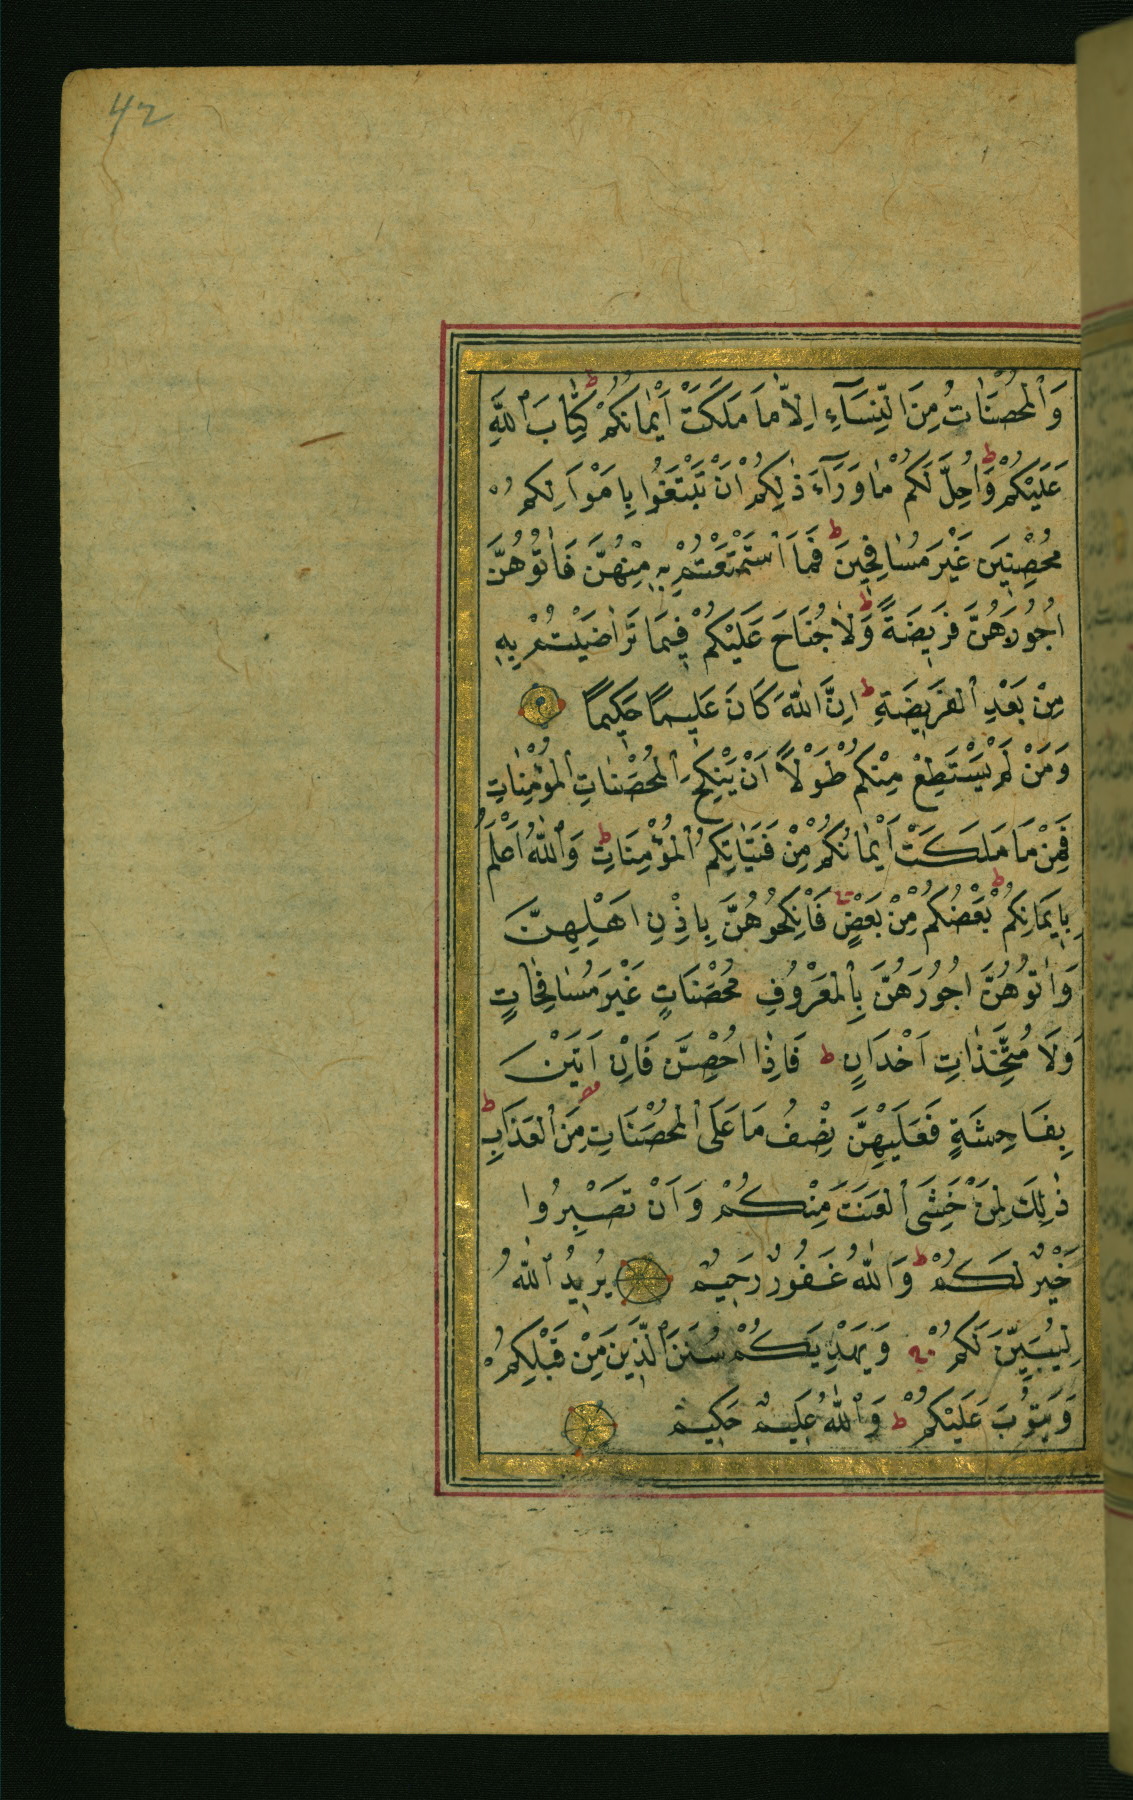 42
وَالْمُحْصَنَاتُ مِنَ النِّسَآءِ اِلَّا مَا مَلَكَتْ اَيْمَانُكُمْ ط كِتَابَ اللهِ
عَلَيْكُمْ ط وَاُحِلَّ لَكُمْ مَا وَرَآءَ ذٰلِكُمْ اَنْ تَبْتَغُوا بِاَمْوَالِكُمْ
مُحْصِنِينَ غَيْرَ مُسَافِحِينَ ط فَمَا اسْتَمْتَعْتُمْ بِهِ مِنْهُنَّ فَاٰتُوهُنَّ
اُجُورَهُنَّ فَرِيضَةً ط وَلَا جُنَاحَ عَلَيْكُمْ فِيمَا تَرَاضَيْتُمْ بِهِ
مِنْ بَعْدِ الْفَرِيضَةِ ط اِنَّ اللهَ كَانَ عَلِيمًا حَكِيمًا
وَمَنْ لَمْ يَسْتَطِعْ مِنْكُمْ طَوْلًا اَنْ يَنْكِحَ الْمُحْصَنَاتِ الْمُؤْمِنَاتِ
فَمِنْ مَا مَلَكَتْ اَيْمَانُكُمْ مِنْ فَتَيَاتِكُمُ الْمُؤْمِنَاتِ ط وَاللهُ اَعْلَمُ
بِاِيمَانِكُمْ ط بَعْضُكُمْ مِنْ بَعْضٍ فَانْكِحُوهُنَّ بِاِذْنِ اَهْلِهِنَّ
وَاٰتُوهُنَّ اُجُورَهُنَّ بِالْمَعْرُوفِ مُحْصَنَاتٍ غَيْرَ مُسَافِحَاتٍ
وَلَا مُتَّخِذَاتِ اَخْدَانٍ ط فَاِذَا اُحْصِنَّ فَاِنْ اَتَيْنَ
بِفَاحِشَةٍ فَعَلَيْهِنَّ نِصْفُ مَا عَلَى الْمُحْصَنَاتِ مِنَ الْعَذَابِ ط
ذٰلِكَ لِمَنْ خَشِىَ الْعَنَتَ مِنْكُمْ وَاَنْ تَصْبِرُوا
خَيْرٌ لَكُمْ ط وَاللهُ غَفُورٌ رَحِيمٌ يُرِيدُ اللهُ
لِيُبَيِّنَ لَكُمْ وَيَهْدِيَكُمْ سُنَنَ الَّذِينَ مِنْ قَبْلِكُمْ
وَيَتُوبَ عَلَيْكُمْ ط وَاللهُ عَلِيمٌ حَكِيمٌ